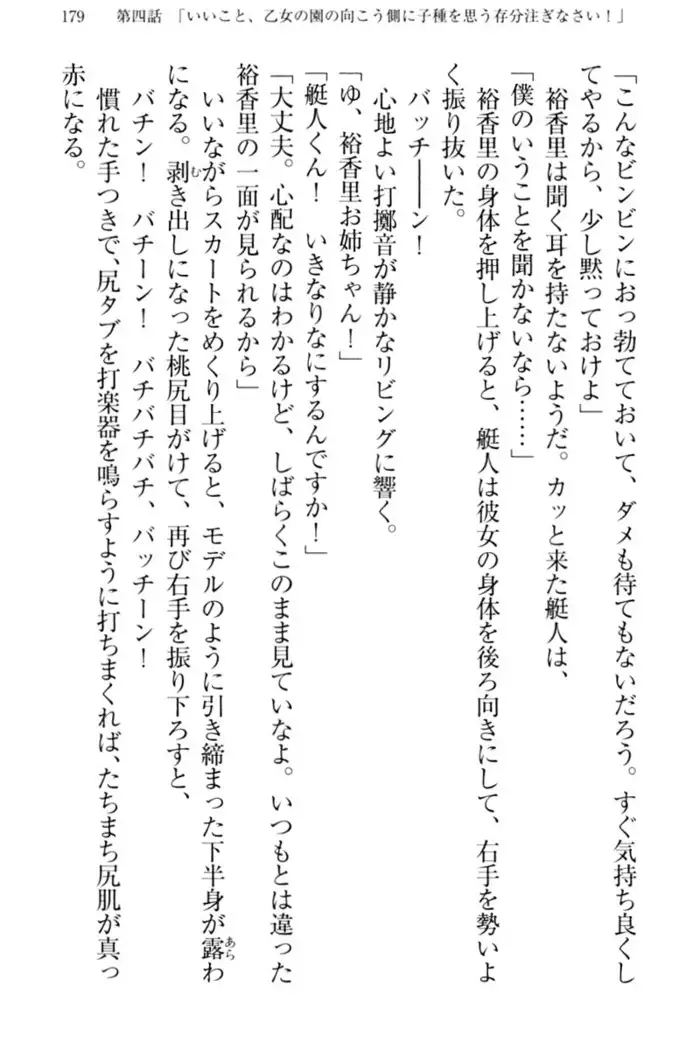 179　第四話　「いいこと、乙女の園の向こう側に子種を思う存分注ぎなさい！」
「こんなビンビンにおっ勃てておいて、ダメも待てもないだろう。すぐ気持ち良くし
てやるから、少し黙っておけよ」
　裕香里は聞く耳を持たないようだ。カッと来た艇人は、
「僕のいうことを聞かないなら……」
　裕香里の身体を押し上げると、艇人は彼女の身体を後ろ向きにして、右手を勢いよ
く振り抜いた。
　バッチ――ン！
　心地よい打擲音が静かなリビングに響く。
「ゆ、裕香里お姉ちゃん！」
「艇人くん！　いきなりなにするんですか！」
「大丈夫。心配なのはわかるけど、しばらくこのまま見ていなよ。いつもとは違った
裕香里の一面が見られるから」
　いいながらスカートをめくり上げると、モデルのように引き締まった下半身が露あらわ
になる。剥むき出しになった桃尻目がけて、再び右手を振り下ろすと、
　バチン！　バチーン！　バチバチバチ、バッチーン！
　慣れた手つきで、尻タブを打楽器を鳴らすように打ちまくれば、たちまち尻肌が真っ
赤になる。